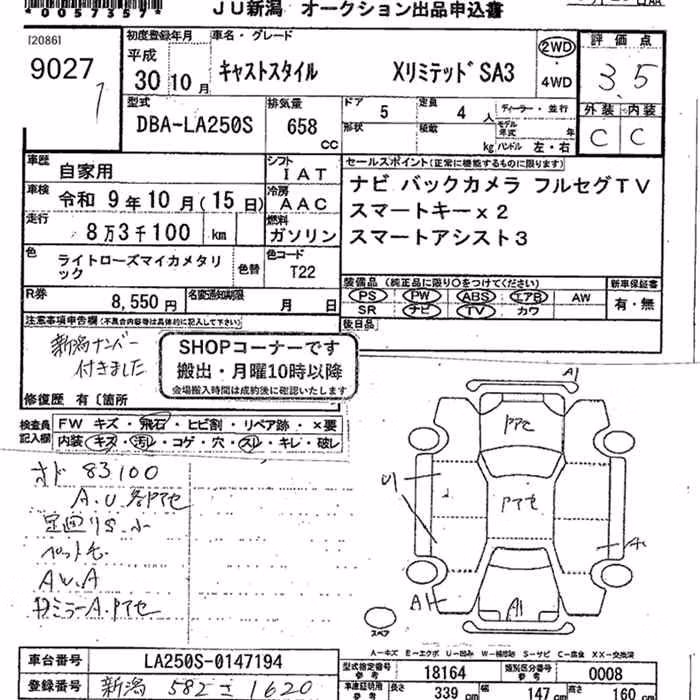 *0057357*
JU新潟 オークション出品申込書
120861
9027
初度登録年月
平成
30 10 月
車名・グレード
キャストスタイル XリミテッドSA3
2WD
4WD
評価点
3.5
外装 内装
C C
型式
DBA-LA250S
排気量
658
CC
ドア 5
定員 4 人
形状
積載 kg
ディーラー・並行
モデル年式 年
ハンドル 左・右
車歴
自家用
シフト
IAT
車検
令和 9年 10月 (15日)
冷房
AAC
走行
8万3千100 km
燃料
ガソリン
セールスポイント(正常に機能するものに限ります)
ナビ バックカメラ フルセグTV
スマートキーx2
スマートアシスト3
色
ライトローズマイカメタリ
ック
色替
色コード
T22
装備品 (純正品に限り○をつけてください)
PS PW ABS エアB AW
SR ナビ TV カワ
新車保証書
有・無
R券
8,550円
名変通知期限
月 日
後日品
注意事項申告欄(不具合内容等は具体的に記入して下さい)
新潟ナンバー
付きました
SHOPコーナーです
搬出・月曜10時以降
会場搬入時間は成約後に確認いたします
修復歴 有〔箇所
検査員
記入欄
FW キズ・飛石・ヒビ割・リペア跡・×要
内装・キズ・汚レ・コゲ・穴・スレ・キレ・破レ
オド 83100
A.U.各アセ
ペット毛
AW.A
ドミラーA.アセ
A1
アセ
アセ
U1
A
A1
スペア
A-キズ E-エクボ U-凹み W-補修跡 S-サビ C-腐食 XX-交換済
車台番号
LA250S-0147194
登録番号
新潟 582 さ 1620
型式指定番号
参考
18164
類別区分番号
参考
0008
長さ
339 cm
幅
147 cm
高さ
160 cm